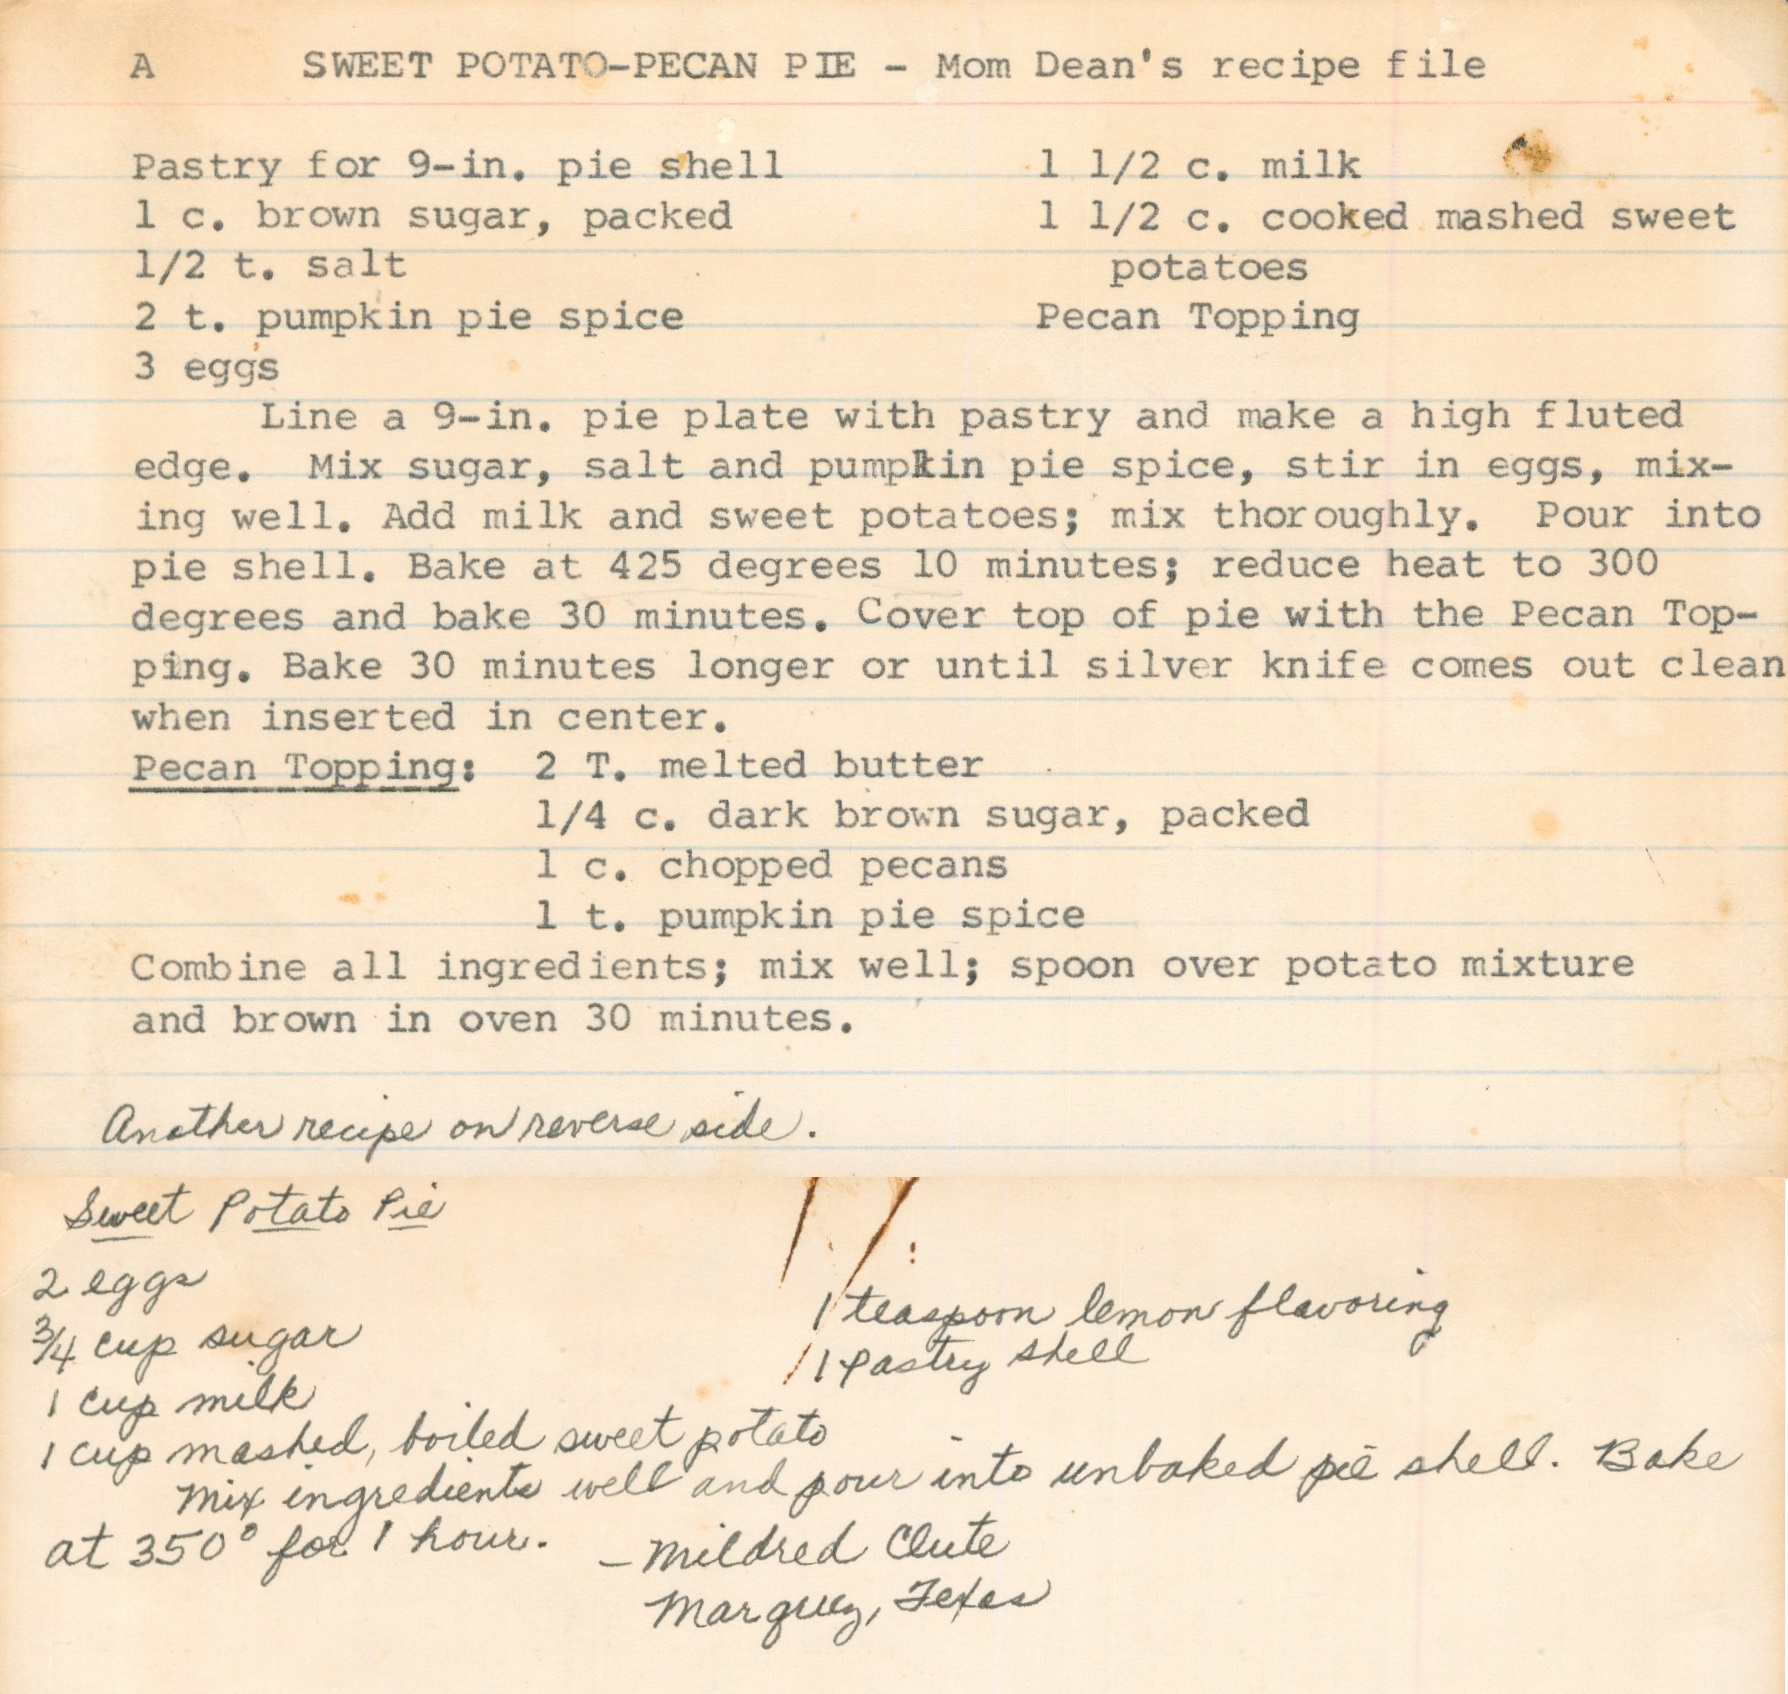 A SWEET POTATO-PECAN PIE - Mom Dean's recipe file
Pastry for 9-in. pie shell
1 c. brown sugar, packed
1/2 t. salt
2 t. pumpkin pie spice
3 eggs
1 1/2 c. milk
1 1/2 c. cooked mashed sweet
potatoes
Pecan Topping
Line a 9-in. pie plate with pastry and make a high fluted
edge. Mix sugar, salt and pumpkin pie spice, stir in eggs, mix-
ing well. Add milk and sweet potatoes; mix thoroughly. Pour into
pie shell. Bake at 425 degrees 10 minutes; reduce heat to 300
degrees and bake 30 minutes. Cover top of pie with the Pecan Top-
ping. Bake 30 minutes longer or until silver knife comes out clean
when inserted in center.
Pecan Topping: 2 T. melted butter
1/4 c. dark brown sugar, packed
1 c. chopped pecans
1 t. pumpkin pie spice
Combine all ingredients; mix well; spoon over potato mixture
and brown in oven 30 minutes.
Another recipe on reverse side.
Sweet Potato Pie
2 eggs
3/4 cup sugar
1 cup milk
1 cup mashed, boiled sweet potato
1 teaspoon lemon flavoring
1 pastry shell
Mix ingredients well and pour into unbaked pie shell. Bake
at 350° for 1 hour.
- Mildred Clute
Marquez, Texas